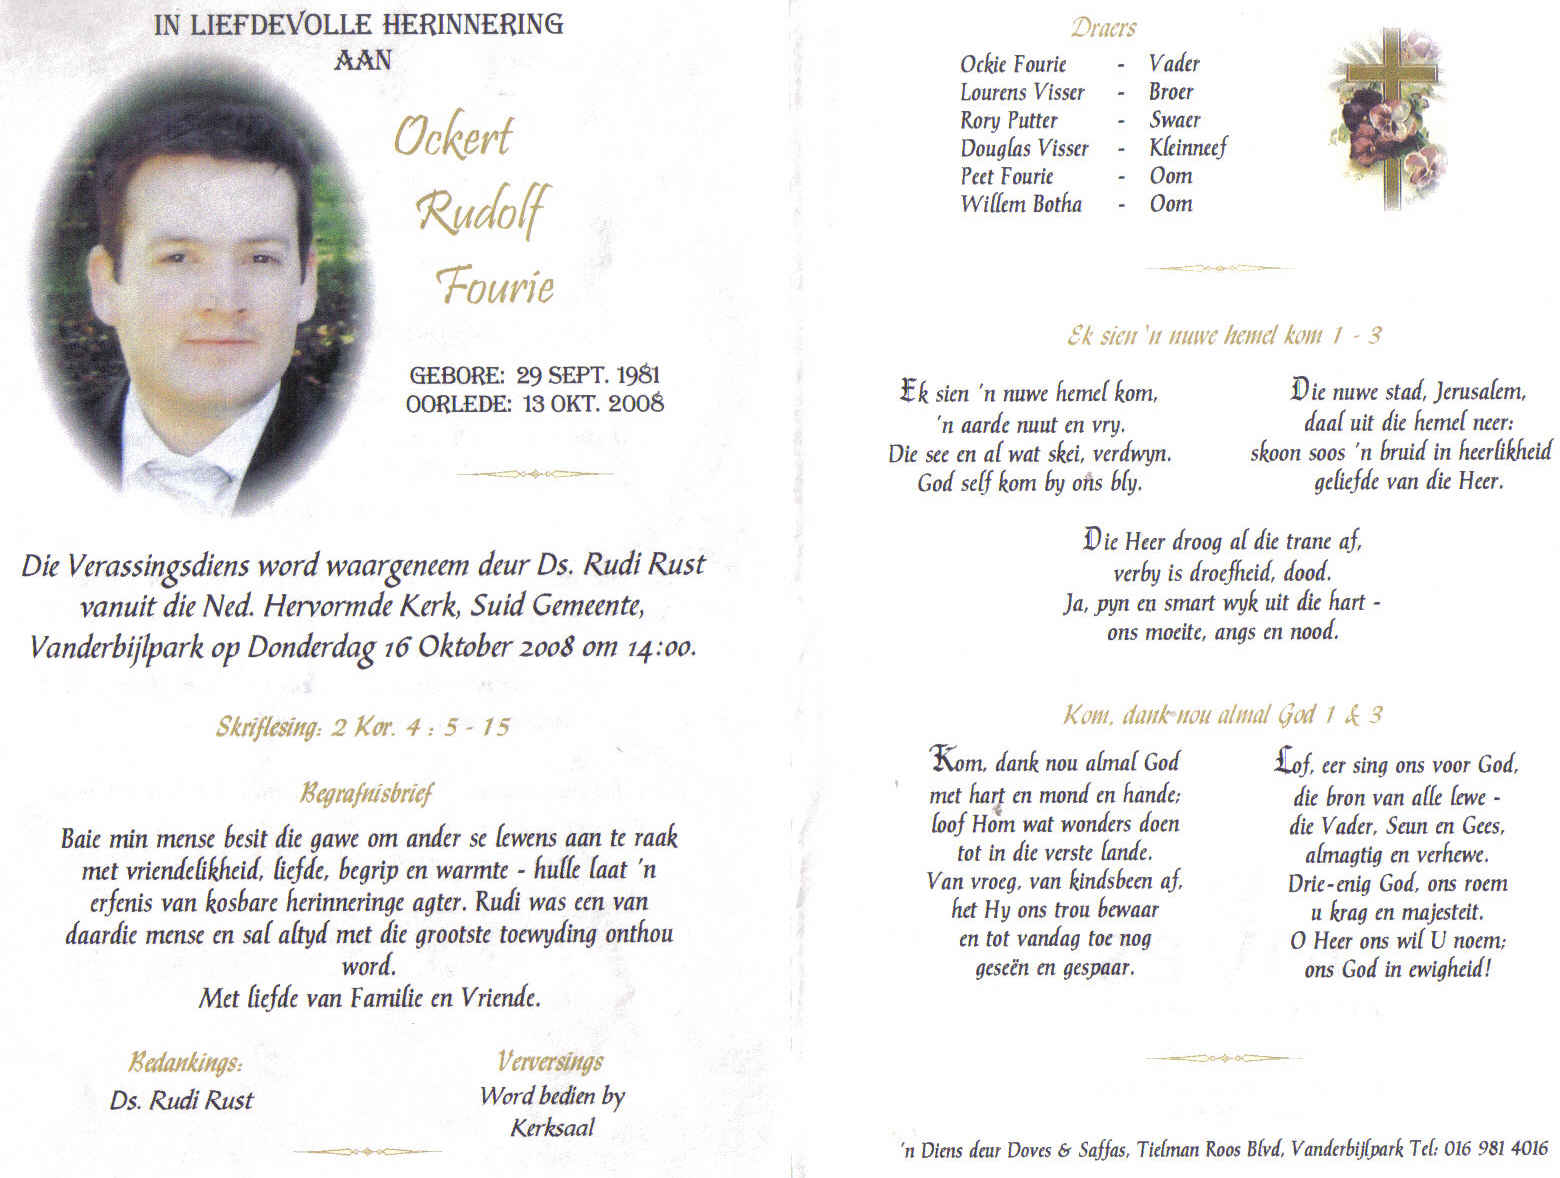 IN LIEFDEVOLLE HERINNERING
AAN
Ockert
Rudolf
Fourie
GEBORE: 29 SEPT. 1981
OORLEDE: 13 OKT. 2008
Die Verassingsdiens word waargeneem deur Ds. Rudi Rust
vanuit die Ned. Hervormde Kerk, Suid Gemeente,
Vanderbijlpark op Donderdag 16 Oktober 2008 om 14:00.
Skriflesing: 2 Kor. 4 : 5 - 15
Begrafnisbrief
Baie min mense besit die gawe om ander se lewens aan te raak
met vriendelikheid, liefde, begrip en warmte - hulle laat 'n
erfenis van kosbare herinneringe agter. Rudi was een van
daardie mense en sal altyd met die grootste toewyding onthou
word.
Met liefde van Familie en Vriende.
Bedankings:
Ds. Rudi Rust
Verversings
Word bedien by
Kerksaal
Draers
Ockie Fourie - Vader
Lourens Visser - Broer
Rory Putter - Swaer
Douglas Visser - Kleinneef
Peet Fourie - Oom
Willem Botha - Oom
Ek sien 'n nuwe hemel kom 1 - 3
Ek sien 'n nuwe hemel kom,
'n aarde nuut en vry.
Die see en al wat skei, verdwyn.
God self kom by ons bly.
Die nuwe stad, Jerusalem,
daal uit die hemel neer:
skoon soos 'n bruid in heerlikheid
geliefde van die Heer.
Die Heer droog al die trane af,
verby is droefheid, dood.
Ja, pyn en smart wyk uit die hart -
ons moeite, angs en nood.
Kom, dank nou almal God 1 & 3
Kom, dank nou almal God
met hart en mond en hande;
loof Hom wat wonders doen
tot in die verste lande.
Van vroeg, van kindsbeen af,
het Hy ons trou bewaar
en tot vandag toe nog
geseën en gespaar.
Lof, eer sing ons voor God,
die bron van alle lewe -
die Vader, Seun en Gees,
almagtig en verhewe.
Drie-enig God, ons roem
u krag en majesteit.
O Heer ons wil U noem;
ons God in ewigheid!
'n Diens deur Doves & Saffas, Tielman Roos Blvd, Vanderbijlpark Tel: 016 981 4016